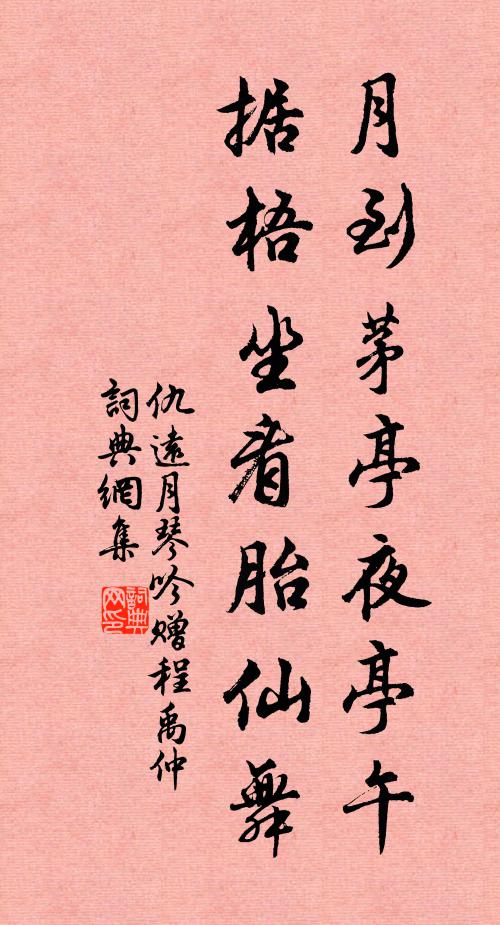 月到茅亭夜亭午
据梧坐看胎仙舞
仇遠月琴吟贈程禹仲
詞典網集
詞典
网印